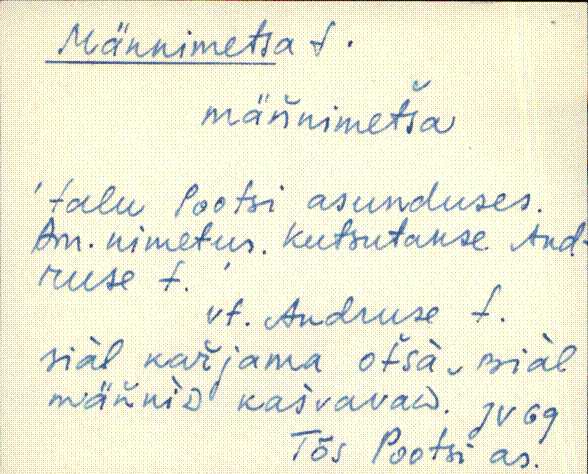 Männimetsa t.
mäňnimetša
'talu Pootsi asunduses.
Am. nimetus. Kutsutakse And-
ruse t.'
vt. Andruse t.
siàl kařjama otšà, siàl
mäňnìD kašvavaD. JV 69
Tõs Pootsi as.